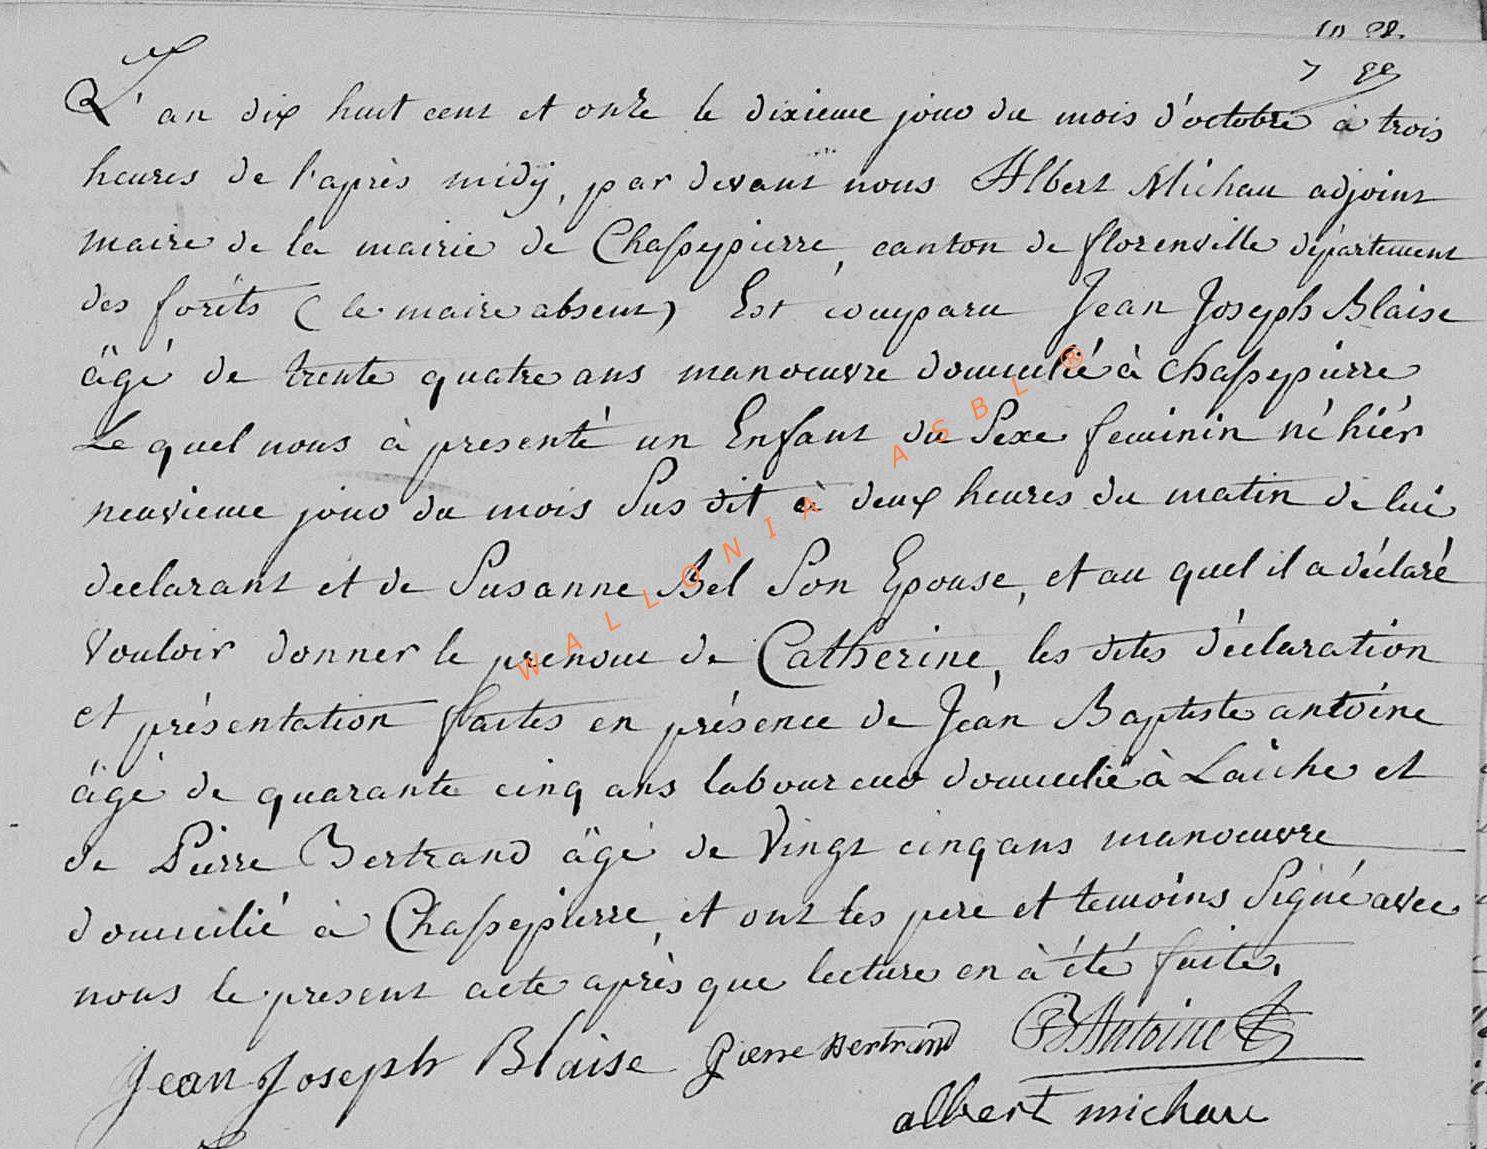 L'an dix huit cent et onze le dixieme jour du mois d'octobre à trois
heures de l'après midÿ, par devant nous Albert Michau adjoint
maire de la mairie de Chassepierre, canton de florenville département
des forêts (le maire absent) Est comparu Jean Joseph Blaise
âgé de trente quatre ans manoeuvre domicilié à chassepierre
Le quel nous à presenté un Enfant du Sexe feminin né hiér
neuvieme jour du mois Sus dit à deux heures du matin de lui
declarant et de Susanne Bel Son Epouse, et au quel il a déclaré
Vouloir donner le prenom de Catherine, les dites déclaration
et présentation faites en présence de Jean Baptiste antoine
âgé de quarante cinq ans laboureur domicilié à Laiche et
de Pierre Bertrand âgé de Vingt cinq ans manoeuvre
domicilié à Chassepierre, et ont les pere et temoins Signé avec
nous le present acte après que lecture en à été faite.
Jean Joseph Blaise Pierre Bertrand JB Antoine
albert michau
WALLONIA ASBL ®